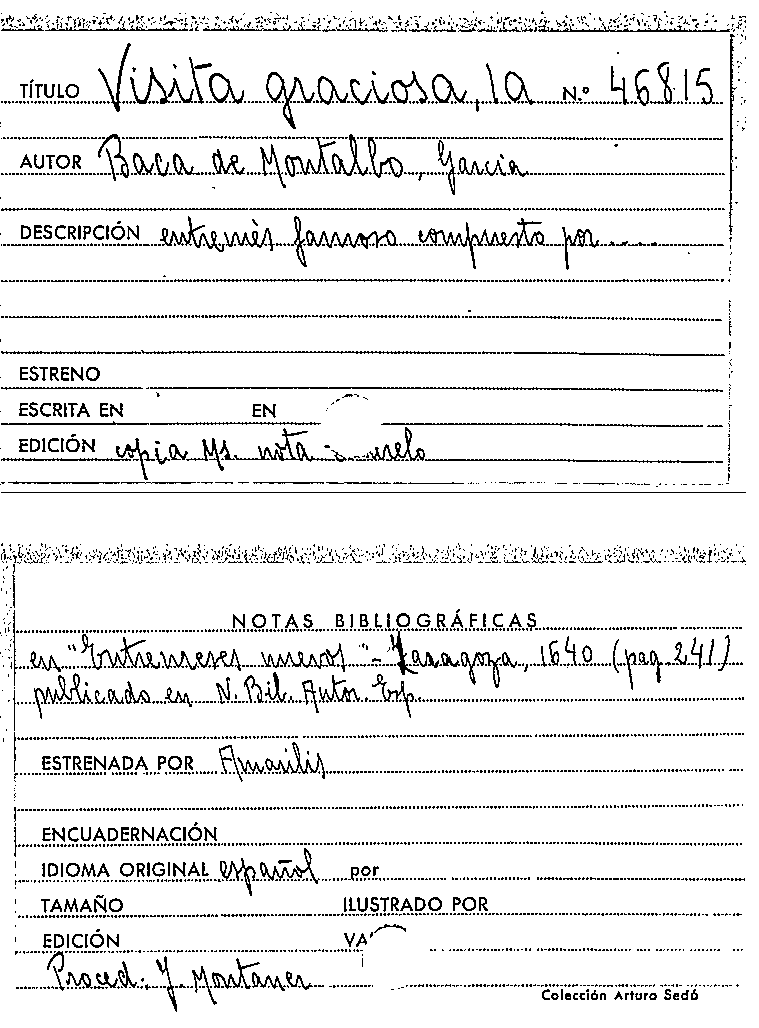 TÍTULO Visita graciosa, la N.º 46815
AUTOR Baca de Montalbo, Garcia
DESCRIPCIÓN entremés famoso compuesto por....
ESTRENO
ESCRITA EN EN
EDICIÓN copia Ms. nota
NOTAS BIBLIOGRÁFICAS
en "Entremeses nuevos" - Zaragoza, 1640 (pag 241)
publicado en N. Bil. Autor. Esp.
ESTRENADA POR Amarilis
ENCUADERNACIÓN
IDIOMA ORIGINAL español por
TAMAÑO ILUSTRADO POR
EDICIÓN VA
Proced: J. Montaner
Colección Arturo Sedó